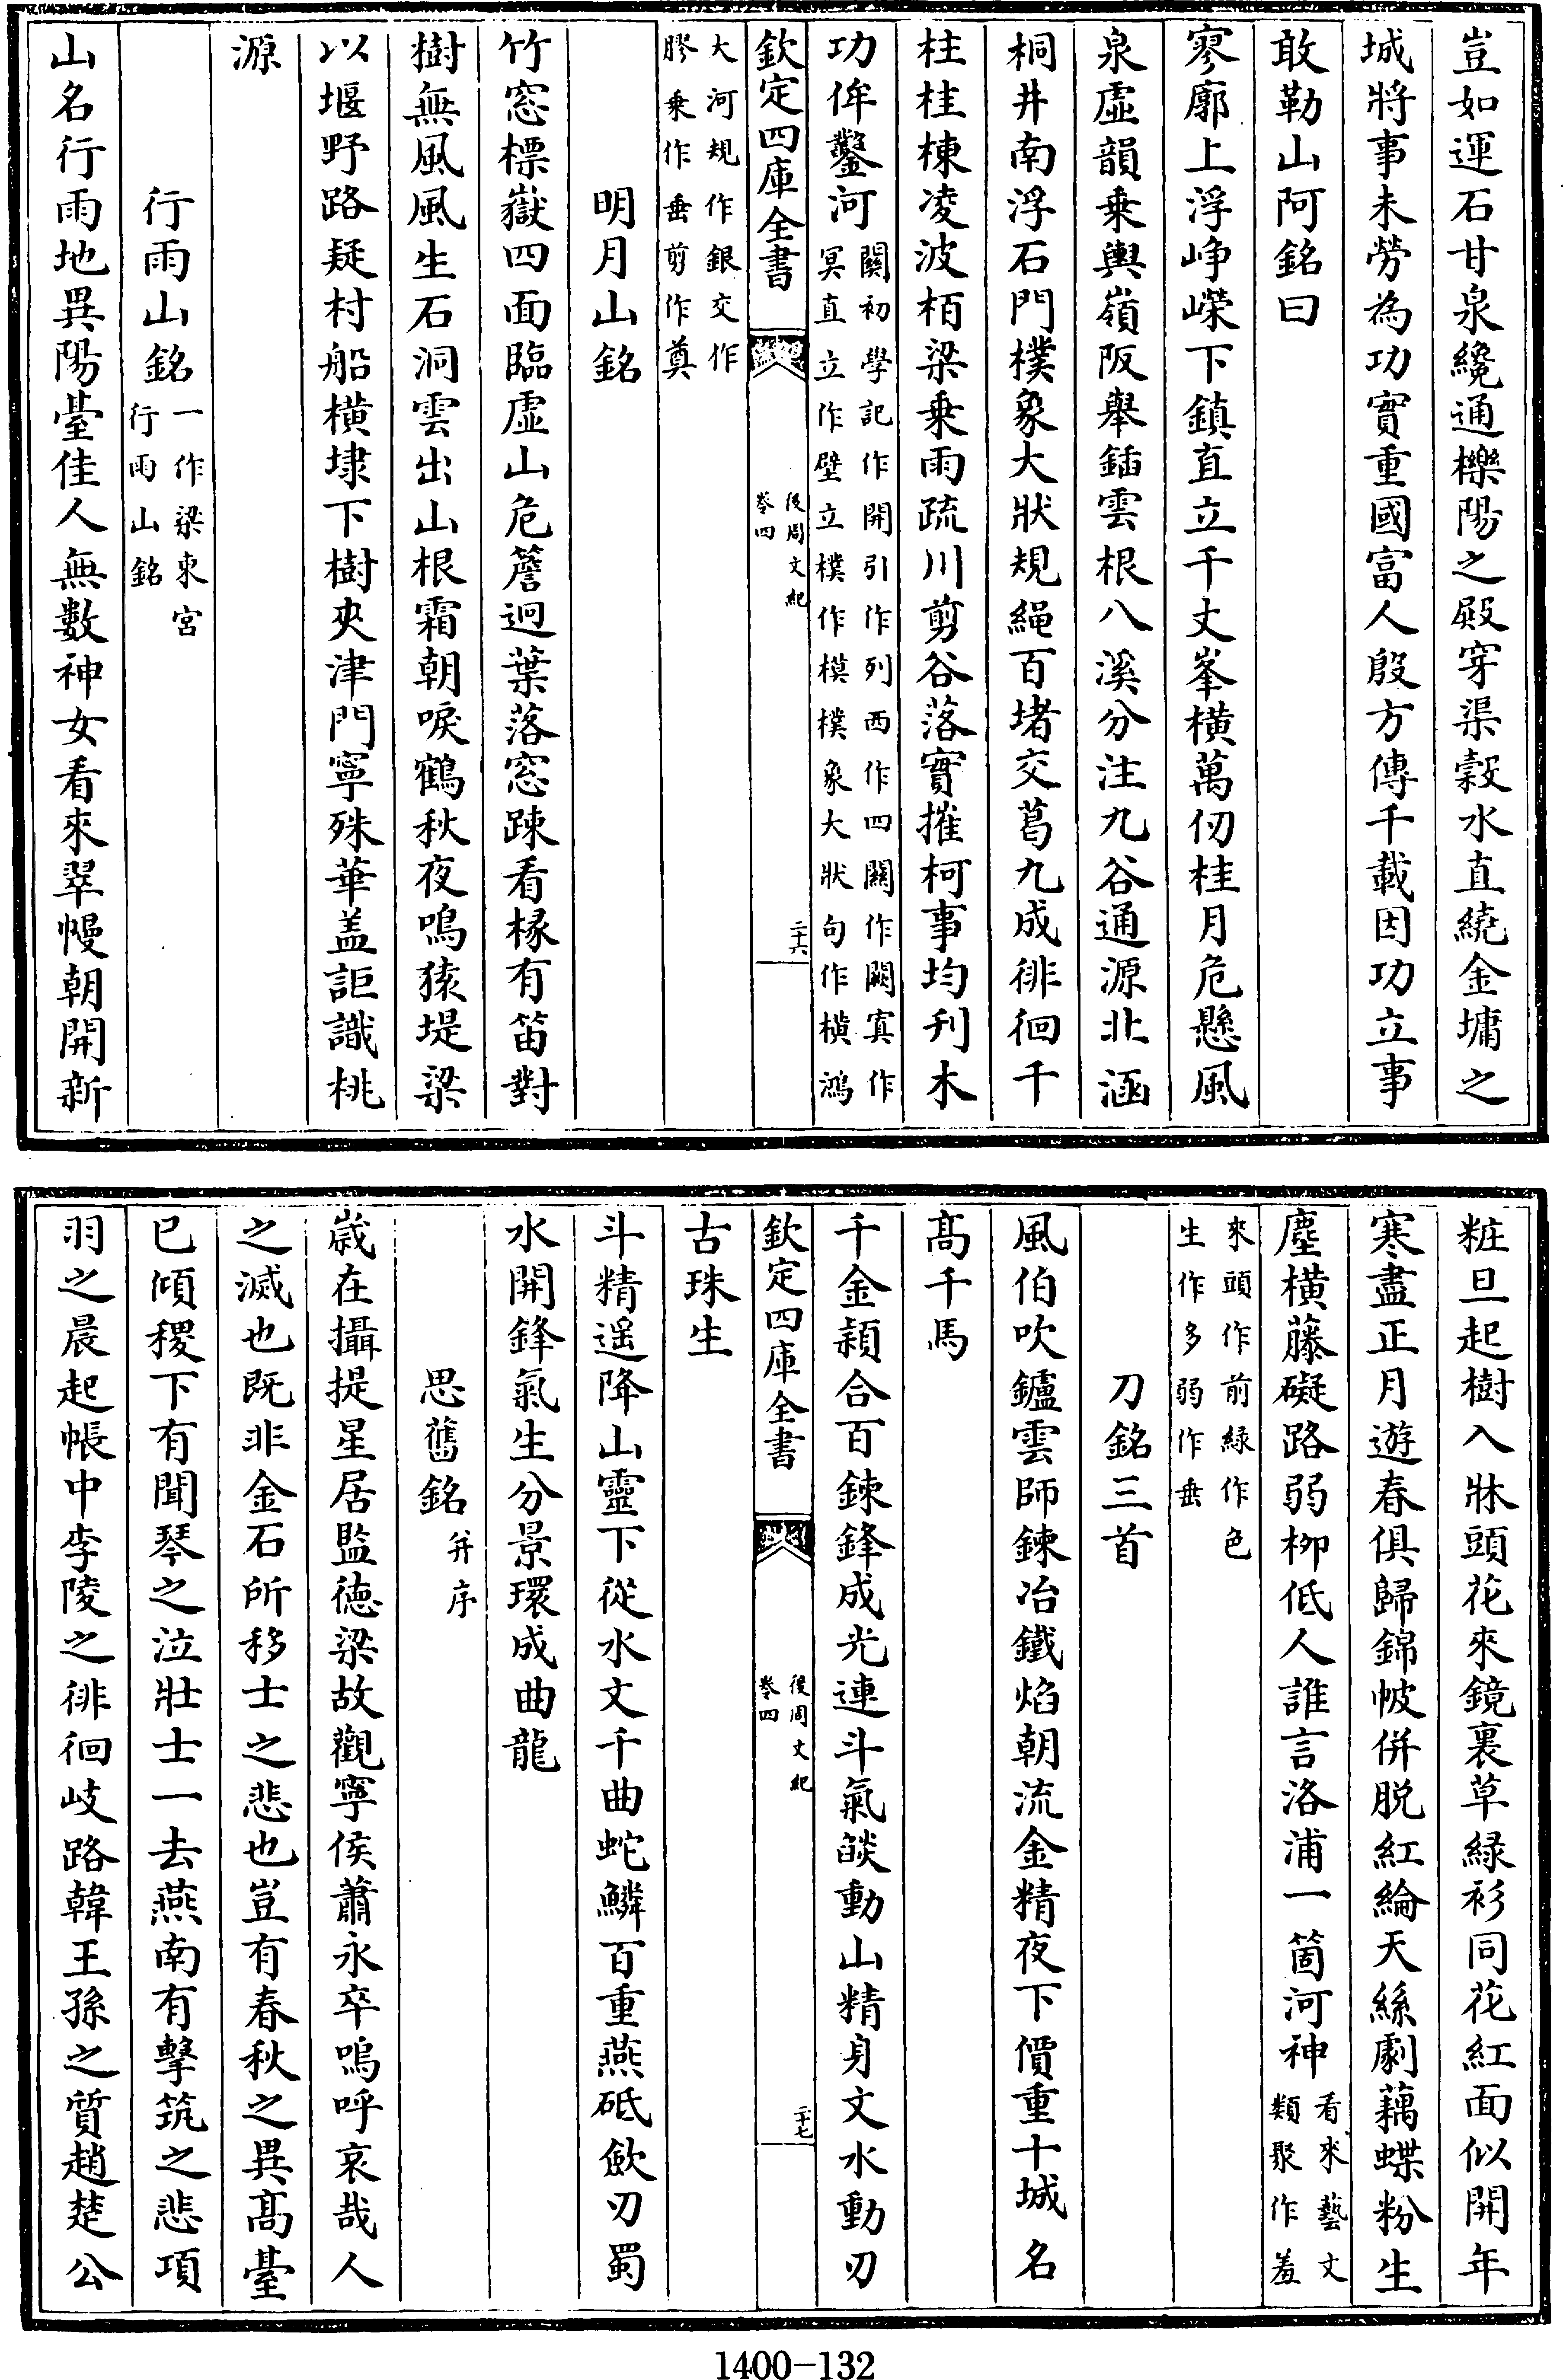 豈如運石甘泉纔通櫟陽之殿穿渠穀水直繞金墉之
城將事未勞為功實重國富人殷方傳千載因功立事
敢勒山阿銘曰
寥廓上浮峥嶸下鎮直立千丈峯横萬仞桂月危懸風
泉虛韻乗輿嶺阪舉鍤雲根八溪分注九谷通源北涵
桐井南浮石門樸象大狀規䋲百堵交葛九成徘徊千
柱桂棟凌波栢梁乗雨疏川剪谷落實摧柯事均刋木
功侔鑿河
關初學記作開引作列西作四關作闕寘作
冥直立作壁立樸作模樸象大狀句作横鴻
欽定四庫全書
後周文紀
卷四
二十六
大河規作銀交作
膠乗作垂剪作奠
明月山銘
竹窓標嶽四面臨虛山危簷迥葉落窓踈看椽有笛對
樹無風風生石洞雲出山根霜朝唳鶴秋夜鳴猿堤梁
以堰野路疑村船横埭下樹夾津門寧殊華盖詎識桃
源
行雨山銘
一作梁東宫
行雨山銘
山名行雨地異陽臺佳人無數神女看來翠幔朝開新
粧旦起樹入牀頭花來鏡裏草緑衫同花紅面似開年
寒盡正月遊春俱歸錦帔併脱紅綸天絲劇藕蝶粉生
塵横藤礙路弱柳低人誰言洛浦一箇河神
看來藝文
類聚作羞
來頭作前緑作色
生作多弱作垂
刀銘三首
風伯吹鑪雲師鍊冶鐵焰朝流金精夜下價重十城名
髙千馬
千金穎合百鍊鋒成光連斗氣燄動山精身文水動刃
欽定四庫全書
後周文紀
卷四
二十七
古珠生
斗精遥降山靈下從水文千曲蛇鱗百重燕砥歛刃蜀
水開鋒氣生分景環成曲龍
思舊銘
并序
歳在攝提星居監徳梁故觀寧侯蕭永卒嗚呼哀哉人
之滅也既非金石所移士之悲也豈有春秋之異髙臺
已傾稷下有聞琴之泣壯士一去燕南有擊筑之悲項
羽之晨起帳中李陵之徘徊岐路韓王孫之質趙楚公
1400-132